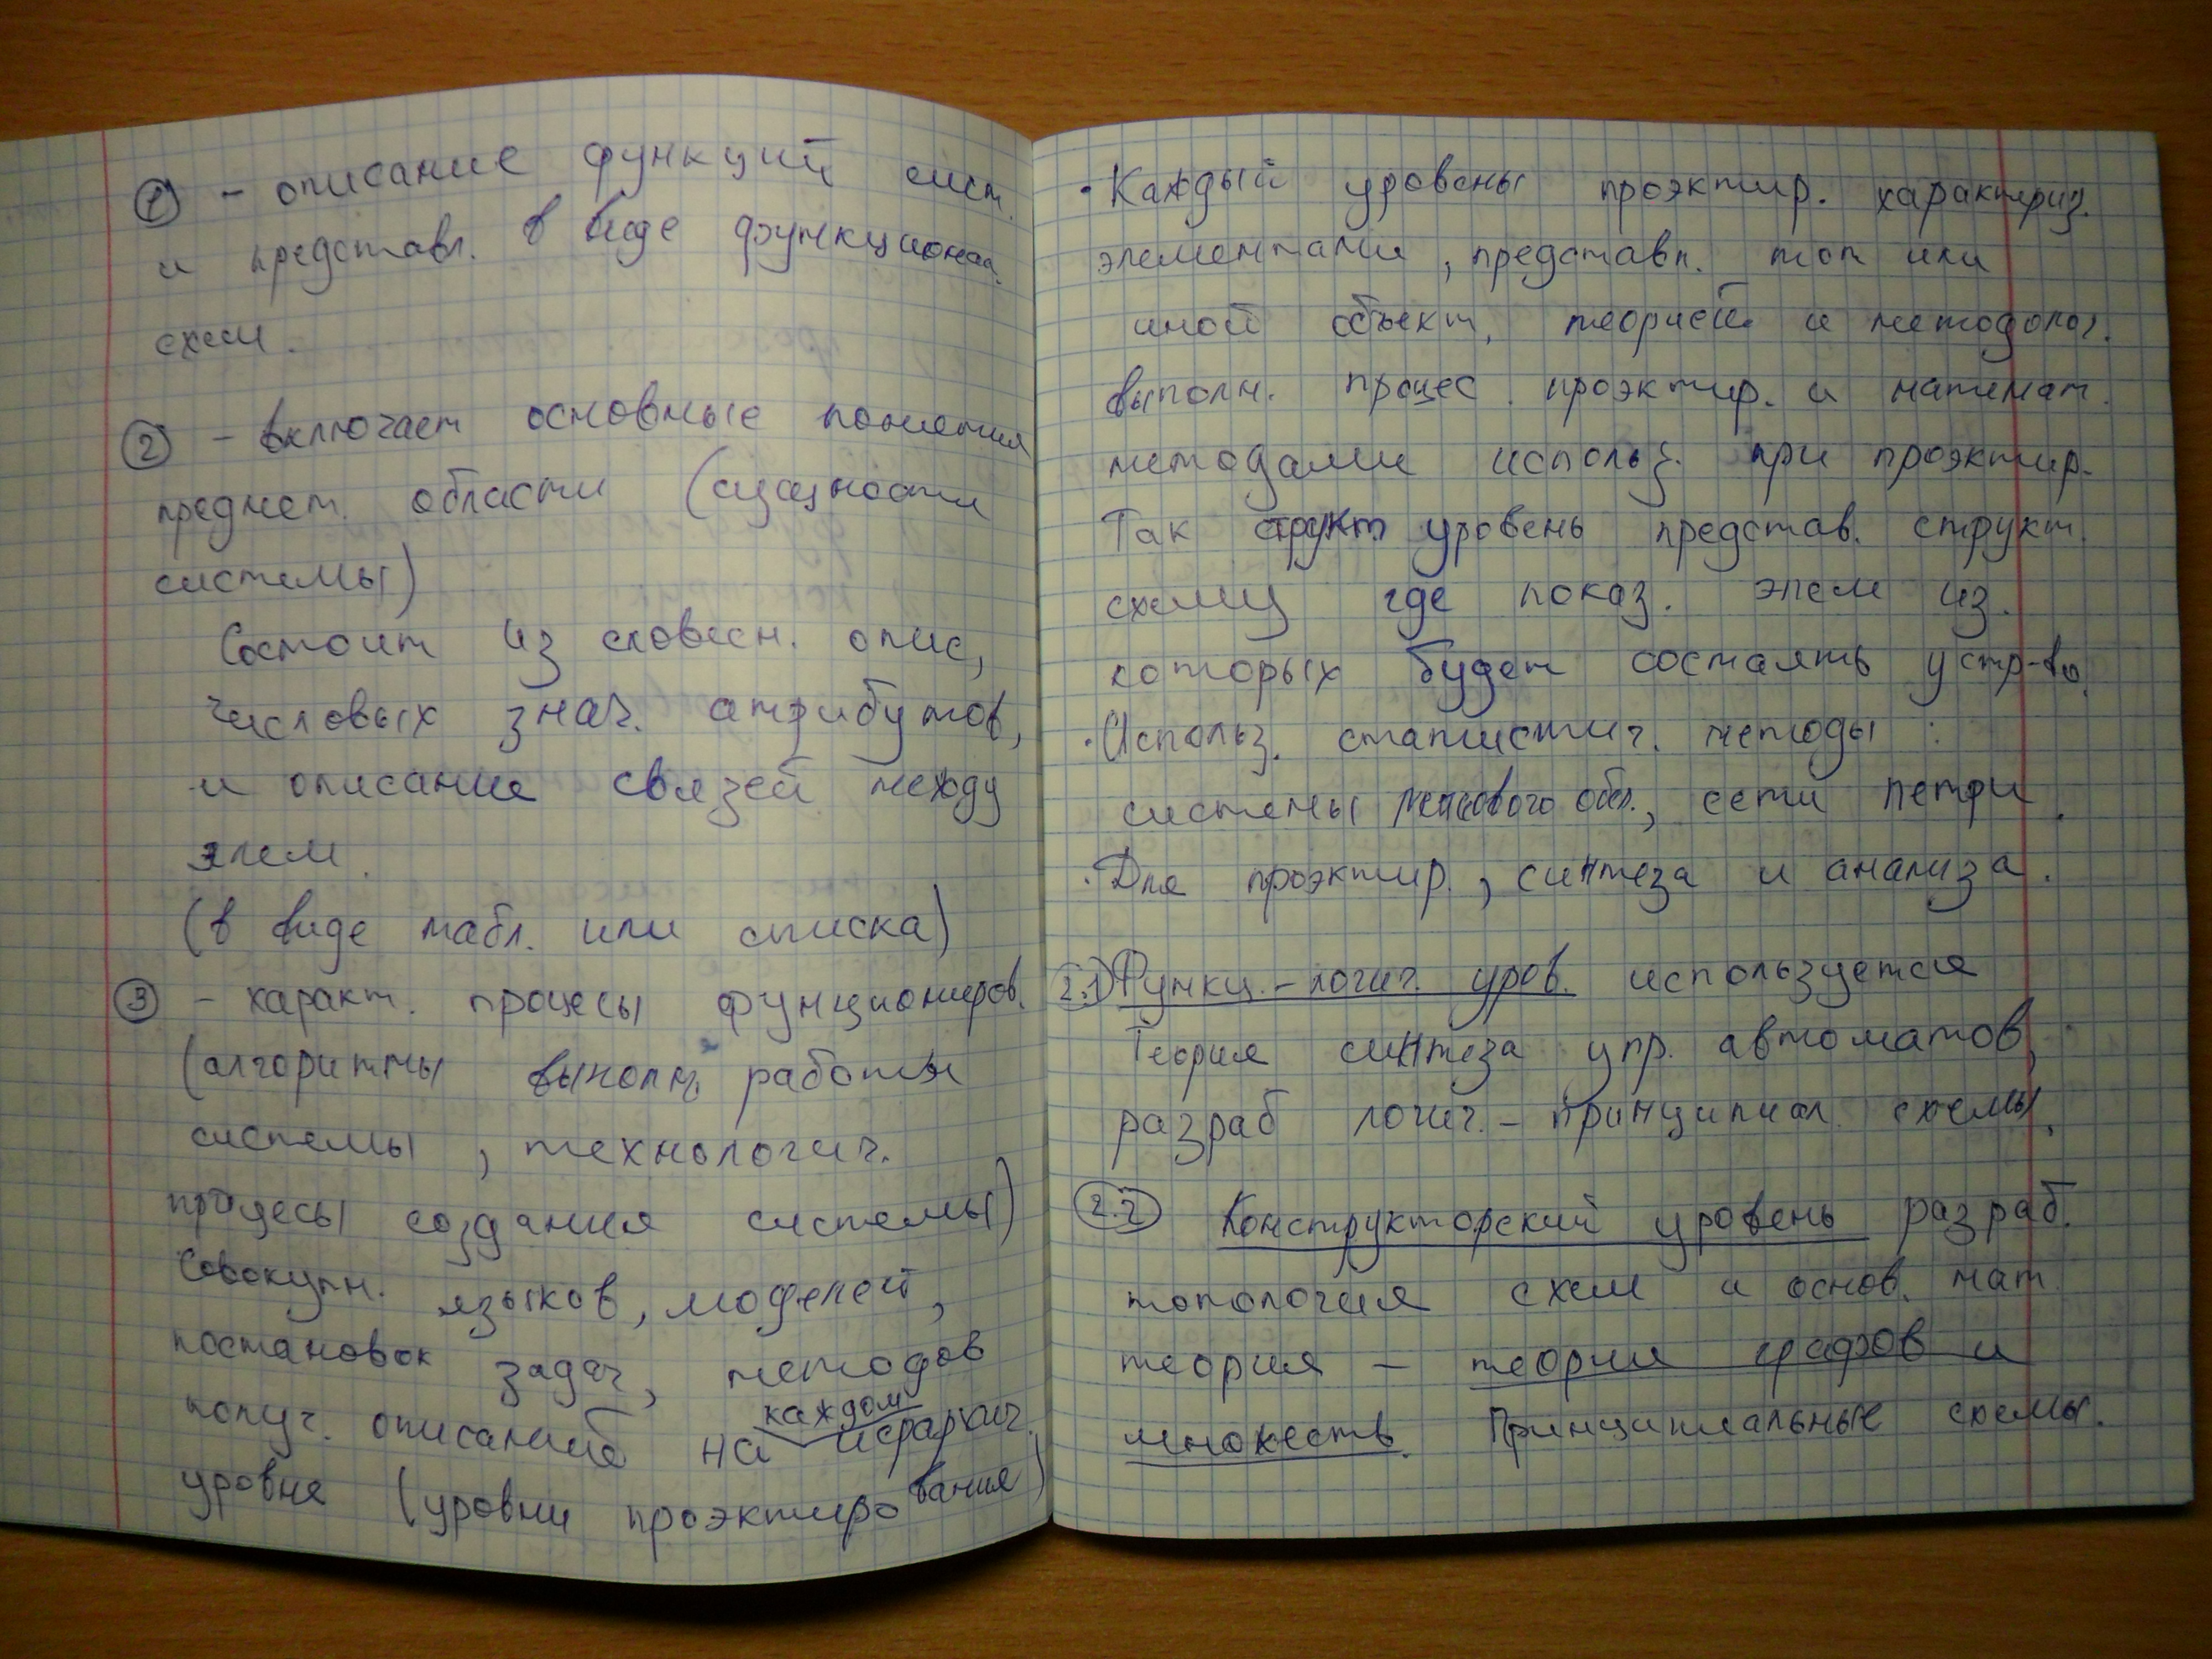 ① - описание функций сист.
и представл. в виде функционал.
схем.
② - включает основные понятия
предмет. области (сущности
системы)
Состоит из словесн. опис,
числовых знач. атрибутов,
и описание связей между
элем.
(в виде табл. или списка)
③ - характ. процесы функциониров.
(алгоритмы выполн. работы
системы, технологич.
процесы создания системы)
Совокупн. языков, моделей,
постановок задач, методов
получ. описаний на каждом иерархич.
уровне (уровни проэктирования)
· Каждый уровень проэктир. характериз.
элементами, представл. тот или
иной объект, теорией и методолог.
выполн. процес. проэктир. и математ.
методами использ. при проэктир.
Так структ. уровень представ. структ.
схему где показ. элем из.
которых будет состаять устр-во.
· Использ. статистич. методы :
системы массового обсл., сети петри.
· Для проэктир., синтеза и анализа.
2.1) Функц. - логич. уров. используется
Теория синтеза упр. автоматов,
разраб логич. - принципиал. схемы.
2.2 Конструкторский уровень разраб.
топология схем и основ. мат.
теория - теории графов и
множеств. Принципиальные схемы.